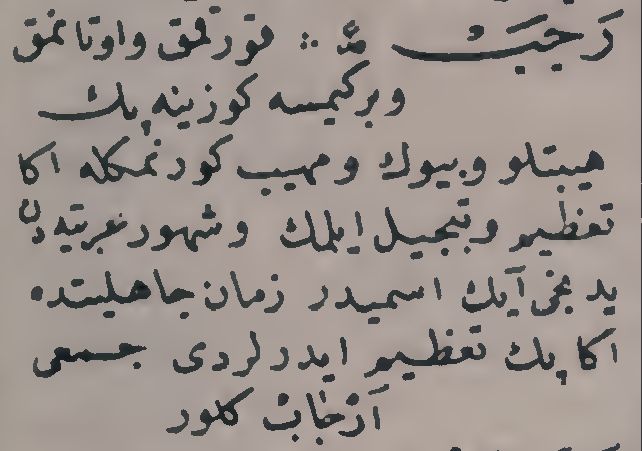 رَجَبْ مد ∴ قورتمق واوتانمق
وبركيمسه كوزينه پك
هيبتلو وبيوك ومهيب كورنمكله اكا
تعظيم وتبجيل ايلمك وشهور عربيه دن
يدنجى آيك اسميدر زمان جاهليتده
اكا پك تعظيم ايدرلردى جمعى
اَرْجَابْ كلور